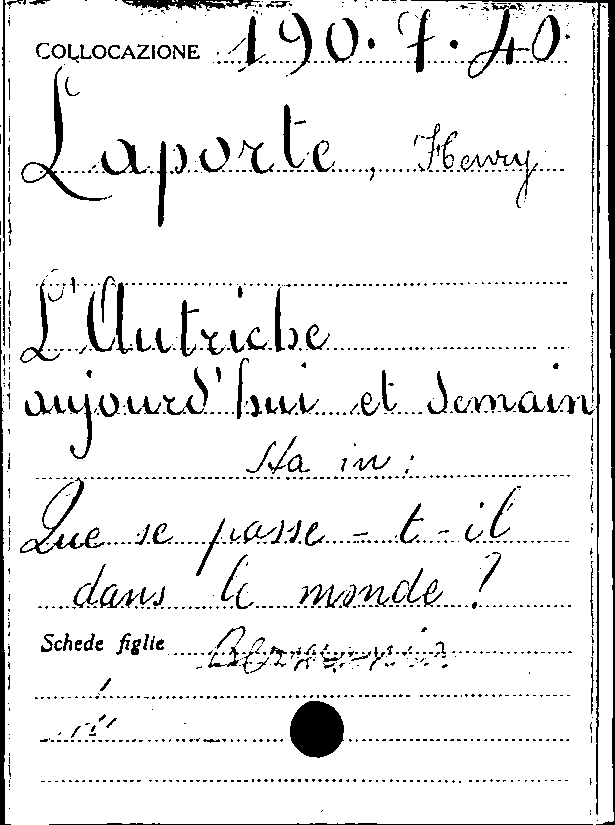 COLLOCAZIONE 190.7.40.
Laporte, Henry
L'Autriche
aujourd'hui et demain
Sta in:
Que se passe-t-il
dans le monde?
Schede figlie